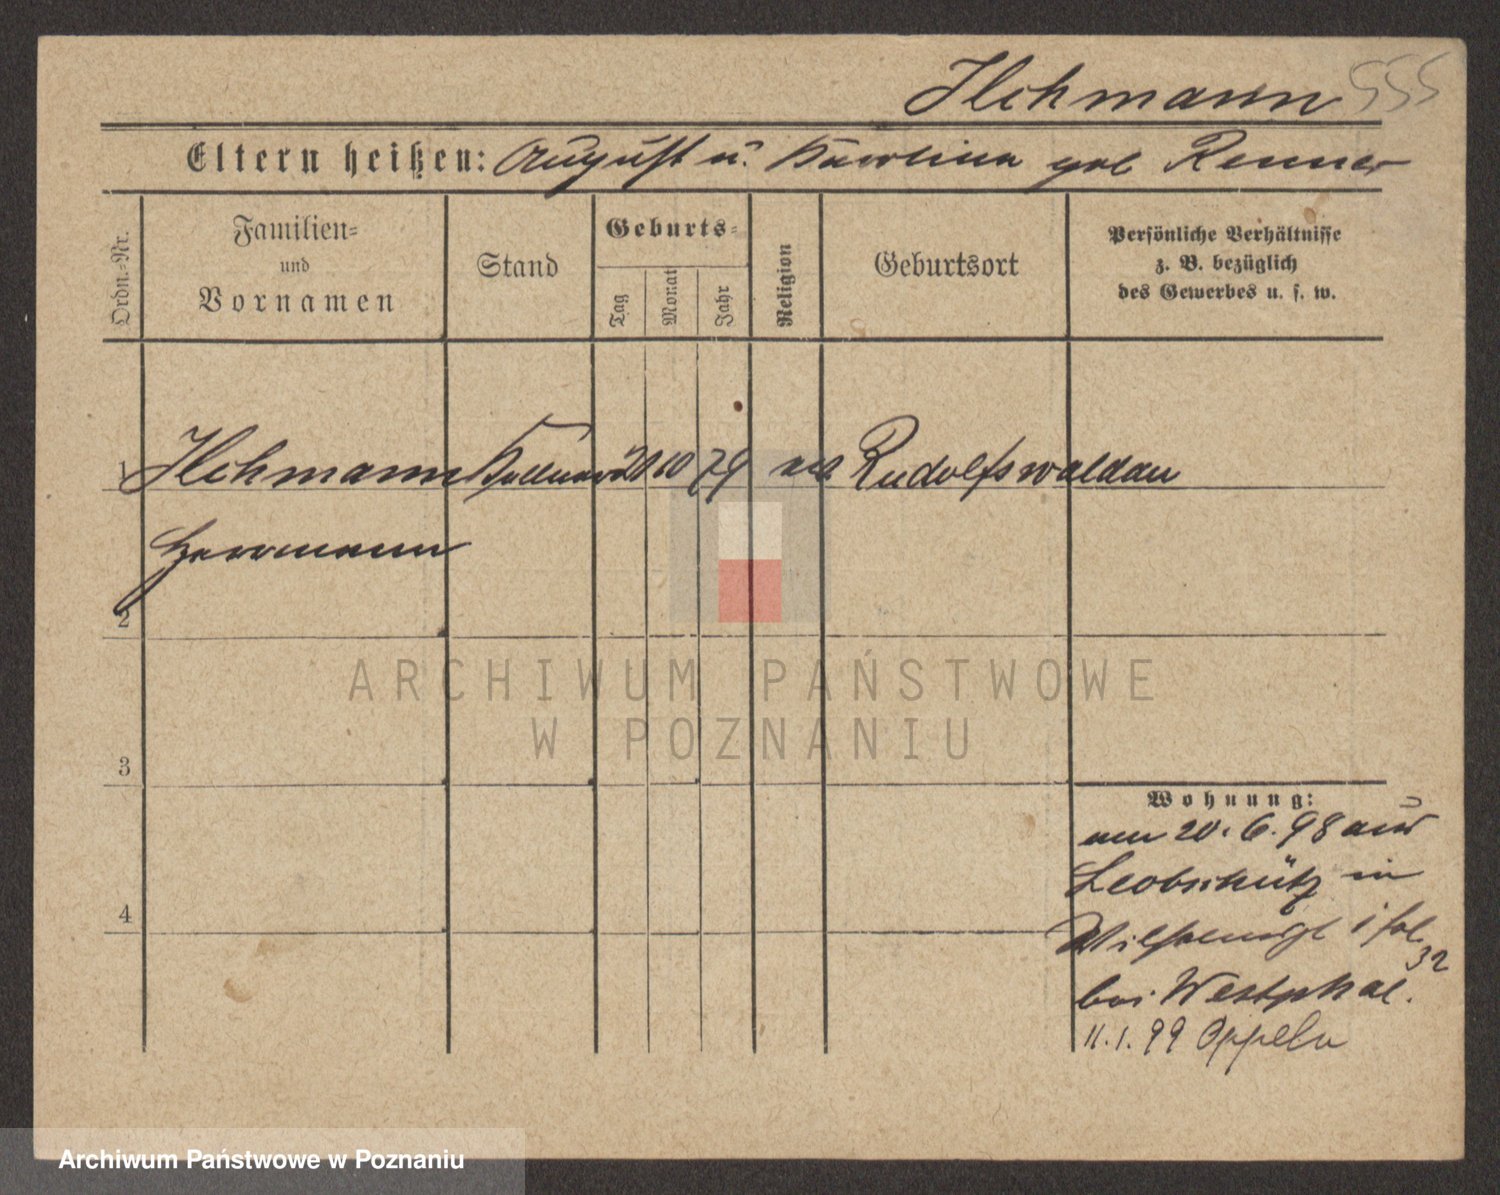 Ilchmann 555
Eltern heißen: August u. Karolina geb Renner
Ordn.=Nr.
Familien=
und
Vornamen
Stand
Geburts=
Tag
Monat
Jahr
Religion
Geburtsort
Persönliche Verhältnisse
z. B. bezüglich
des Gewerbes u. s. w.
1 Ilchmann Kellner 21 10 79 Rudolfswaldau
Herrmann
2
3
4
Wohnung:
am 20. 6. 98 aus
Leobschütz in
32
bei Westphal.
11. 1. 99 Oppeln
ARCHIWUM PAŃSTWOWE
W POZNANIU
Archiwum Państwowe w Poznaniu